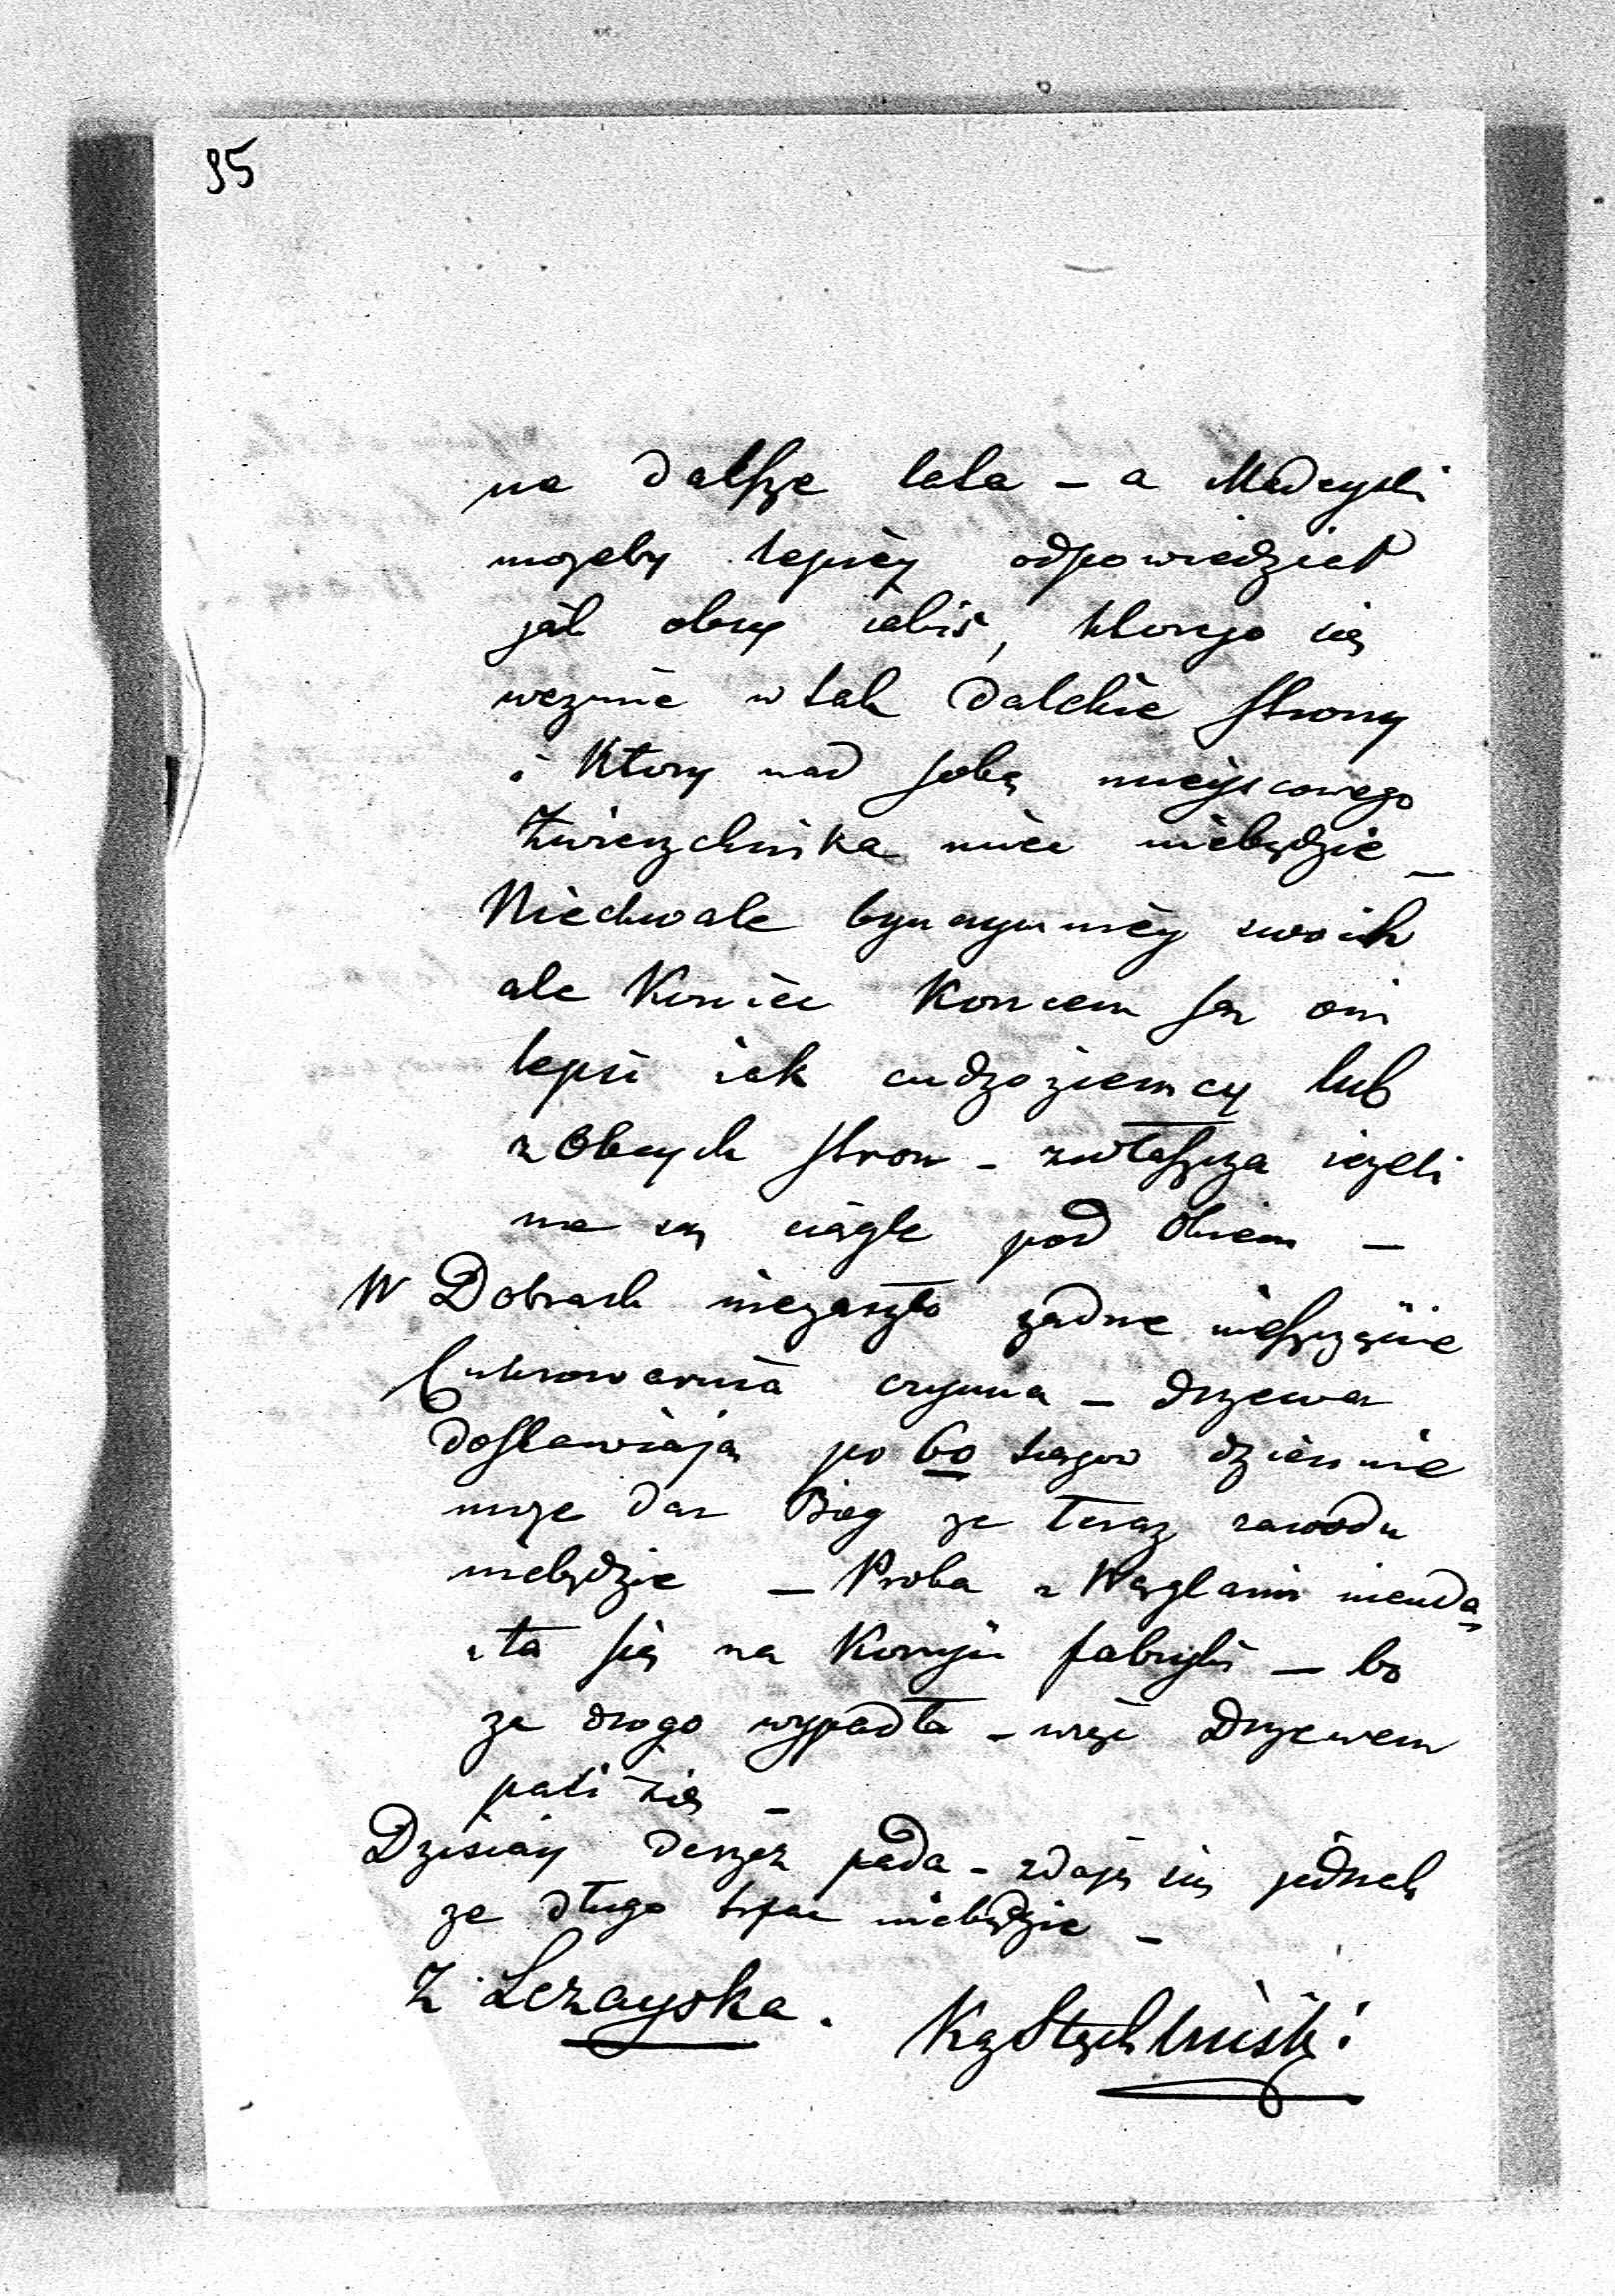 95
na dalsze lata – a Madeyski
możeby lepiéy odpowiedział
jak obcy iakiś, ktorego się
wezmie w tak dalekie strony
i ktory nad sobą mieyscowego
zwierzchnika miec niebędzie –
Niechwale bynaymniéy swoich
ale koniec koncem są oni
lepsi iak cudzoziemcy lub
z Obcych stron – zwłaszcza ieżeli
ma się ciągle pod Okiem –
W Dobrach niezaszło żadne nieszczęście
Cukrowarnia czynna – drzewa
dostawiają po 60 sągow dziennie
może da Bog że teraz zawodu
niebędzie – Proba z Węglami nieuda
ła się na Koszyn fabryki – bo
za drogo wypadła – więc Drzewem
pali się –
Dzisiay deszcz pada – zdaje się jednak
że długo trwac niebędzie –
Z Leżayska.